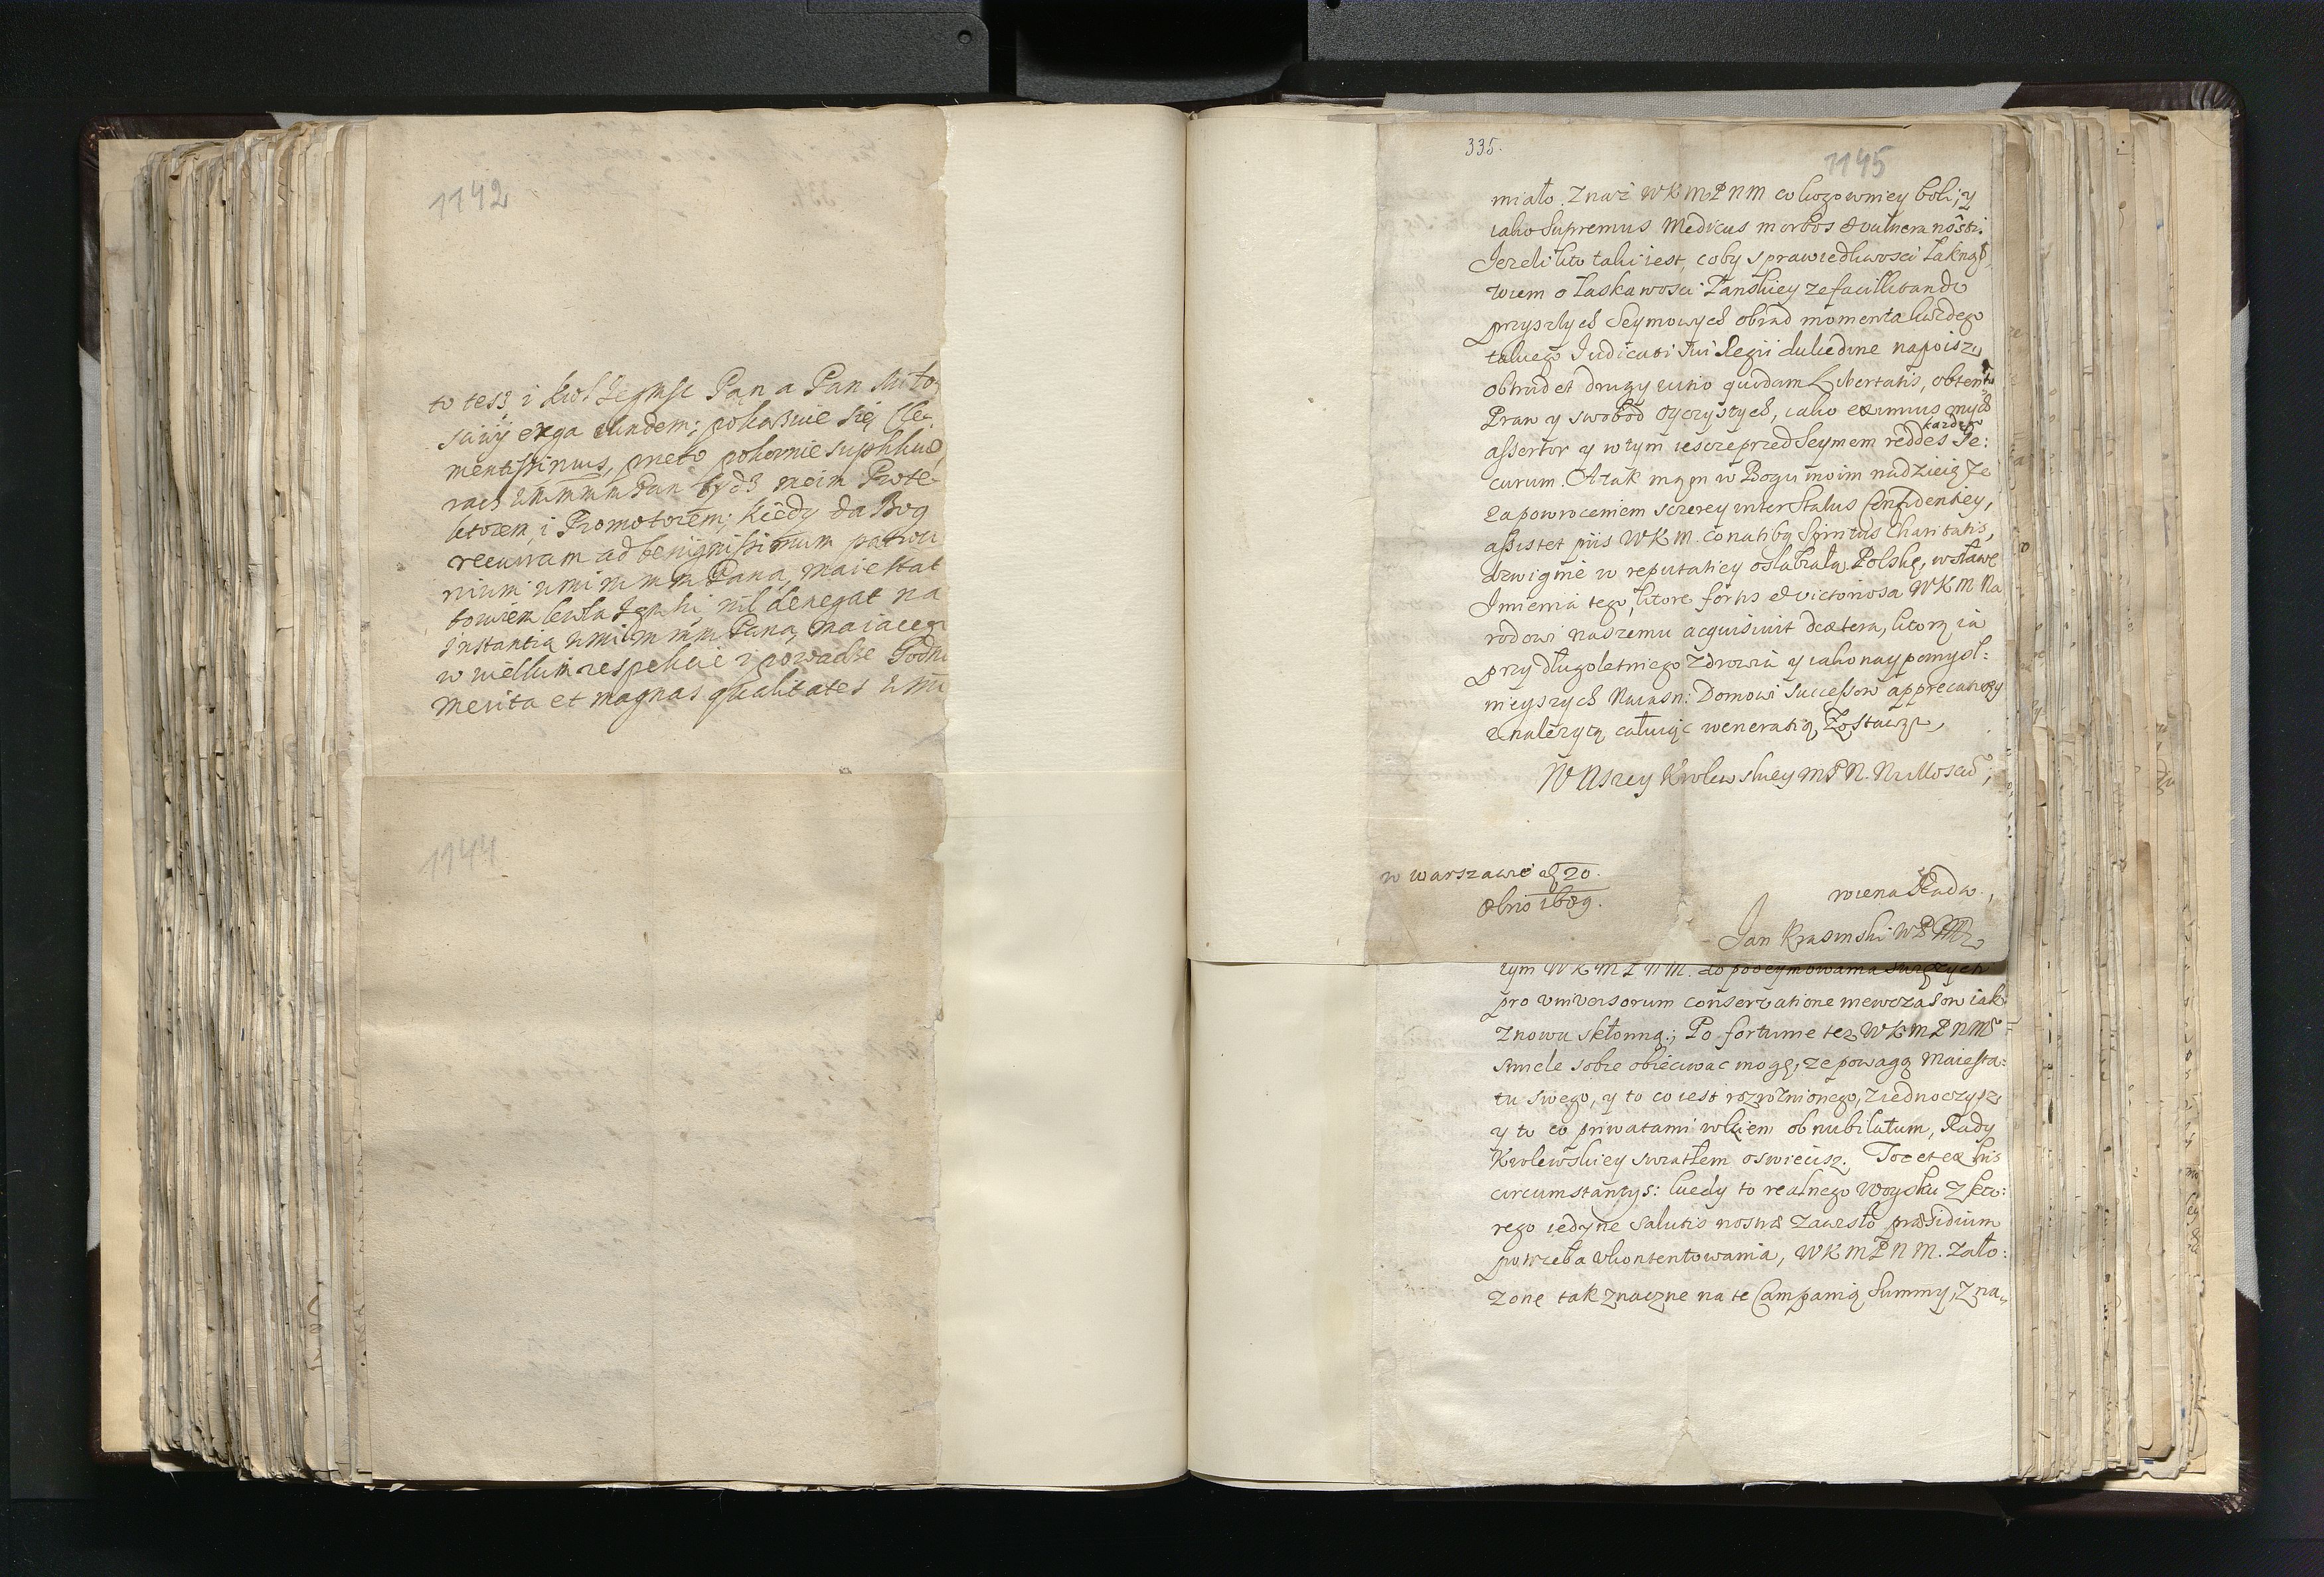 1142
to tesz i Krol Jegmsc Pan a Pan Milo
sciwy erga eundem; pokazuie się Cle-
mentissimus, przeto pokornie supplikuię,
racz Pan bydz moim Prote-
ktorem, i Promotorem; kiedy da Bog
recurram ad benignissimum patroci
nium Pana, maiestat
bowiem nil denegat na
Instantią Pana, maiącego
w wielkim respekcie i powadze Godne
merita et magnas qualitates
1144
335.
1145
miało. Znasz WKMPNM co kogo w niey boli; y
iako Supremus Medicus morbos & vulnera nostri.
Jezeli kto taki iest, coby sprawiedliwosci Łaknął,
wiem o Łaskawosci Panskiey ze facilitando
przyszłych Seymowych obrad momenta kazdego
takiego Judicati Sui Regii dulcedine napoisz,
drugy Libertatis,
Praw y swobod Oyczystych, iako eximius onych
assertor y w tym ieszcze przed Seymem reddes kazdego Se:
curum. A tak mąm w Bogu moim nadzieię ze
za powroceniem sczerey inter Status Confidentiey,
assistet piis WKM. conatibg Spiritus Charitatis,
dzwignie w reputatiey osłabiałą Polskę, wsławę
Imienia tego, ktore fortis & victoriosa WKM Na
rodowi naszemu acquisivit dextera, ktorą ia
przy długoletniego zdrowia y iako naypomysl:
nieyszych Naiasn: Domowi successow apprecatiey
z należytą całuiąc weneratią, Zostaię,
W Aszey Krolewskiey MPN. Miłosciw,
w Warszawie d 20.
8bris 1689.
wierna Rada.,
Jan Krasinski WPM
tym WKMPNM. do podeymowania
pro universorum conservatione niewczasow iak
znowu skłonną; Po fortunie tez WKMPNM
smiele sobie obiecować mogę, ze powagą Maiesta:
tu swego, y to co iest rozroznionego, ziednoczysz
y to co priwatami wkiem obnubilatum, Rady
Krolewskiey swiatłem oswiecisz. Toc et ex his
circumstantys: kiedy to realnego Woysku z kto:
rego iedyne salutis nostræ zawisło præsidium
potrzeba ukontentowania, WKMPNM. zało:
zonę tak znaczne na te Campanią Summy, zna-